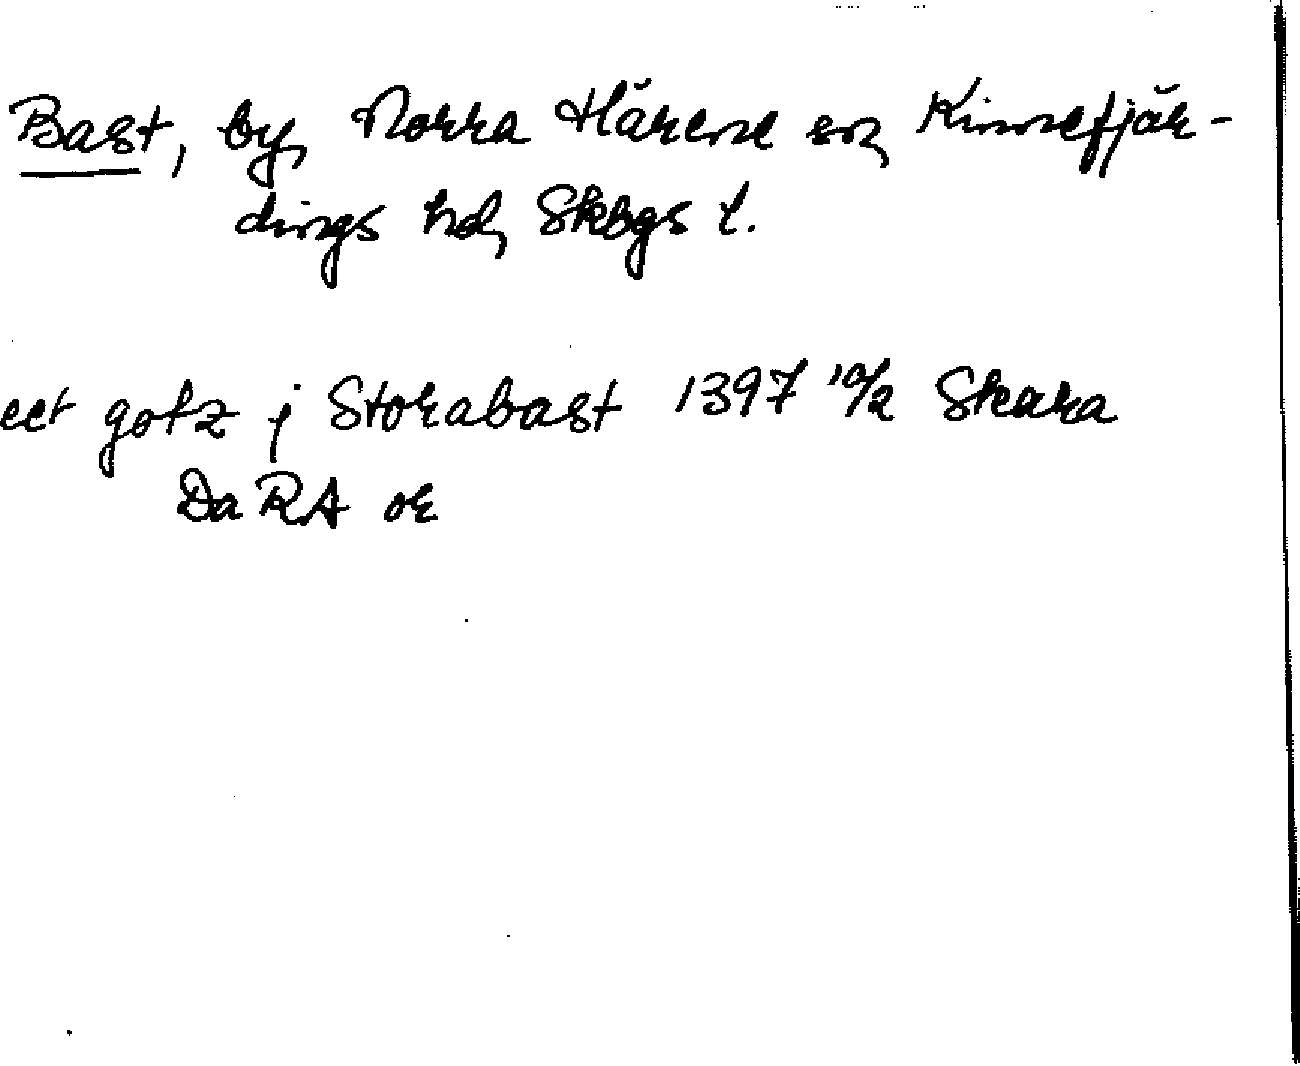 Bast, by, Norra Härene sn, Kinnefjär-
dings hd, Skbgs l.
eet gotz j Storabast 1397 10/2 Skara
DaRA or